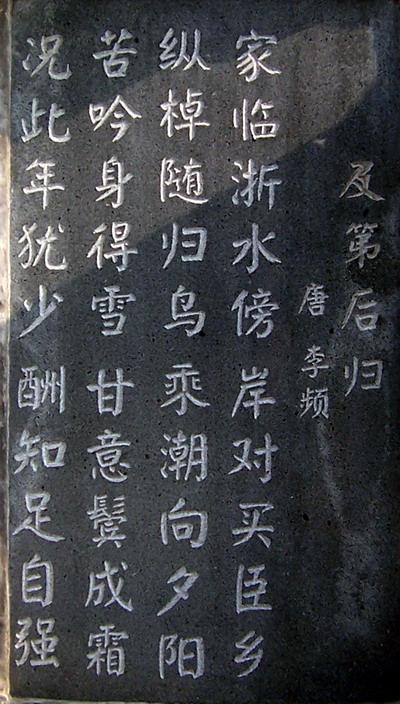 及第后归
唐 李频
家临浙水傍 岸对买臣乡
纵棹随归鸟 乘潮向夕阳
苦吟身得雪 甘意鬓成霜
况此年犹少 酬知足自强